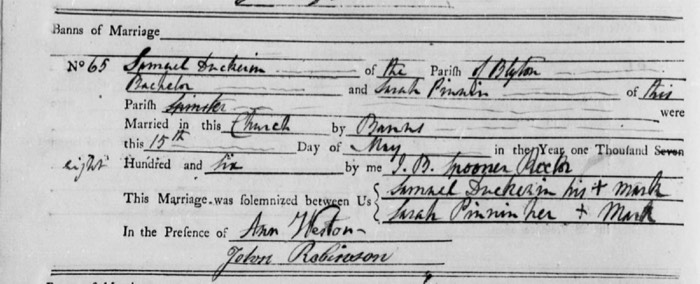 Banns of Marriage
No 65 Samuel Duckerin of the Parish of Blyton
Bachelor and Sarah Pinnin of this
Parish Spinster were
Married in this Church by Banns
this 15th Day of May in the Year one Thousand Seven
eight Hundred and six by me J. B. Spooner Rector
This Marriage was solemnized between Us { Samuel Duckerin his + mark
Sarah Pinnin her + Mark
In the Presence of Ann Weston
John Robinson